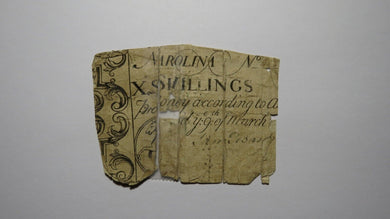 NAROLINA No
X SHILLINGS
Proc oney according to A
th
d y 9 of March